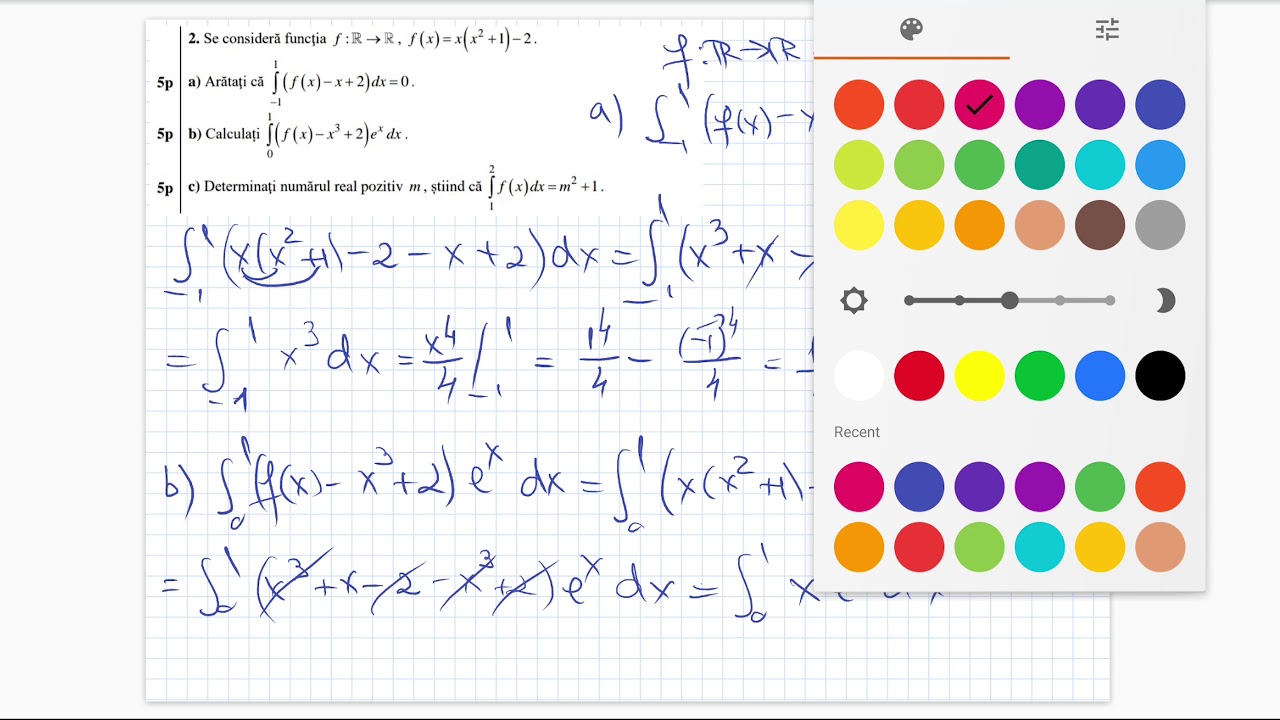 2. Se consideră funcția f : ℝ → ℝ, f(x) = x(x² + 1) − 2.
5p a) Arătați că ∫₋₁¹ (f(x) − x + 2) dx = 0.
5p b) Calculați ∫₀¹ (f(x) − x³ + 2) eˣ dx.
5p c) Determinați numărul real pozitiv m, știind că ∫₁² f(x) dx = m² + 1.
f : ℝ → ℝ
a) ∫₋₁¹ (f(x) −
∫₋₁¹ (x(x² + 1) − 2 − x + 2) dx = ∫₋₁¹ (x³ + x −
= ∫₋₁¹ x³ dx = x⁴/4 |₋₁¹ = 1⁴/4 − (−1)⁴/4 =
b) ∫₀¹ (f(x) − x³ + 2) eˣ dx = ∫₀¹ (x(x² + 1) −
= ∫₀¹ (x³ + x − 2 − x³ + 2) eˣ dx = ∫₀¹ x
Recent